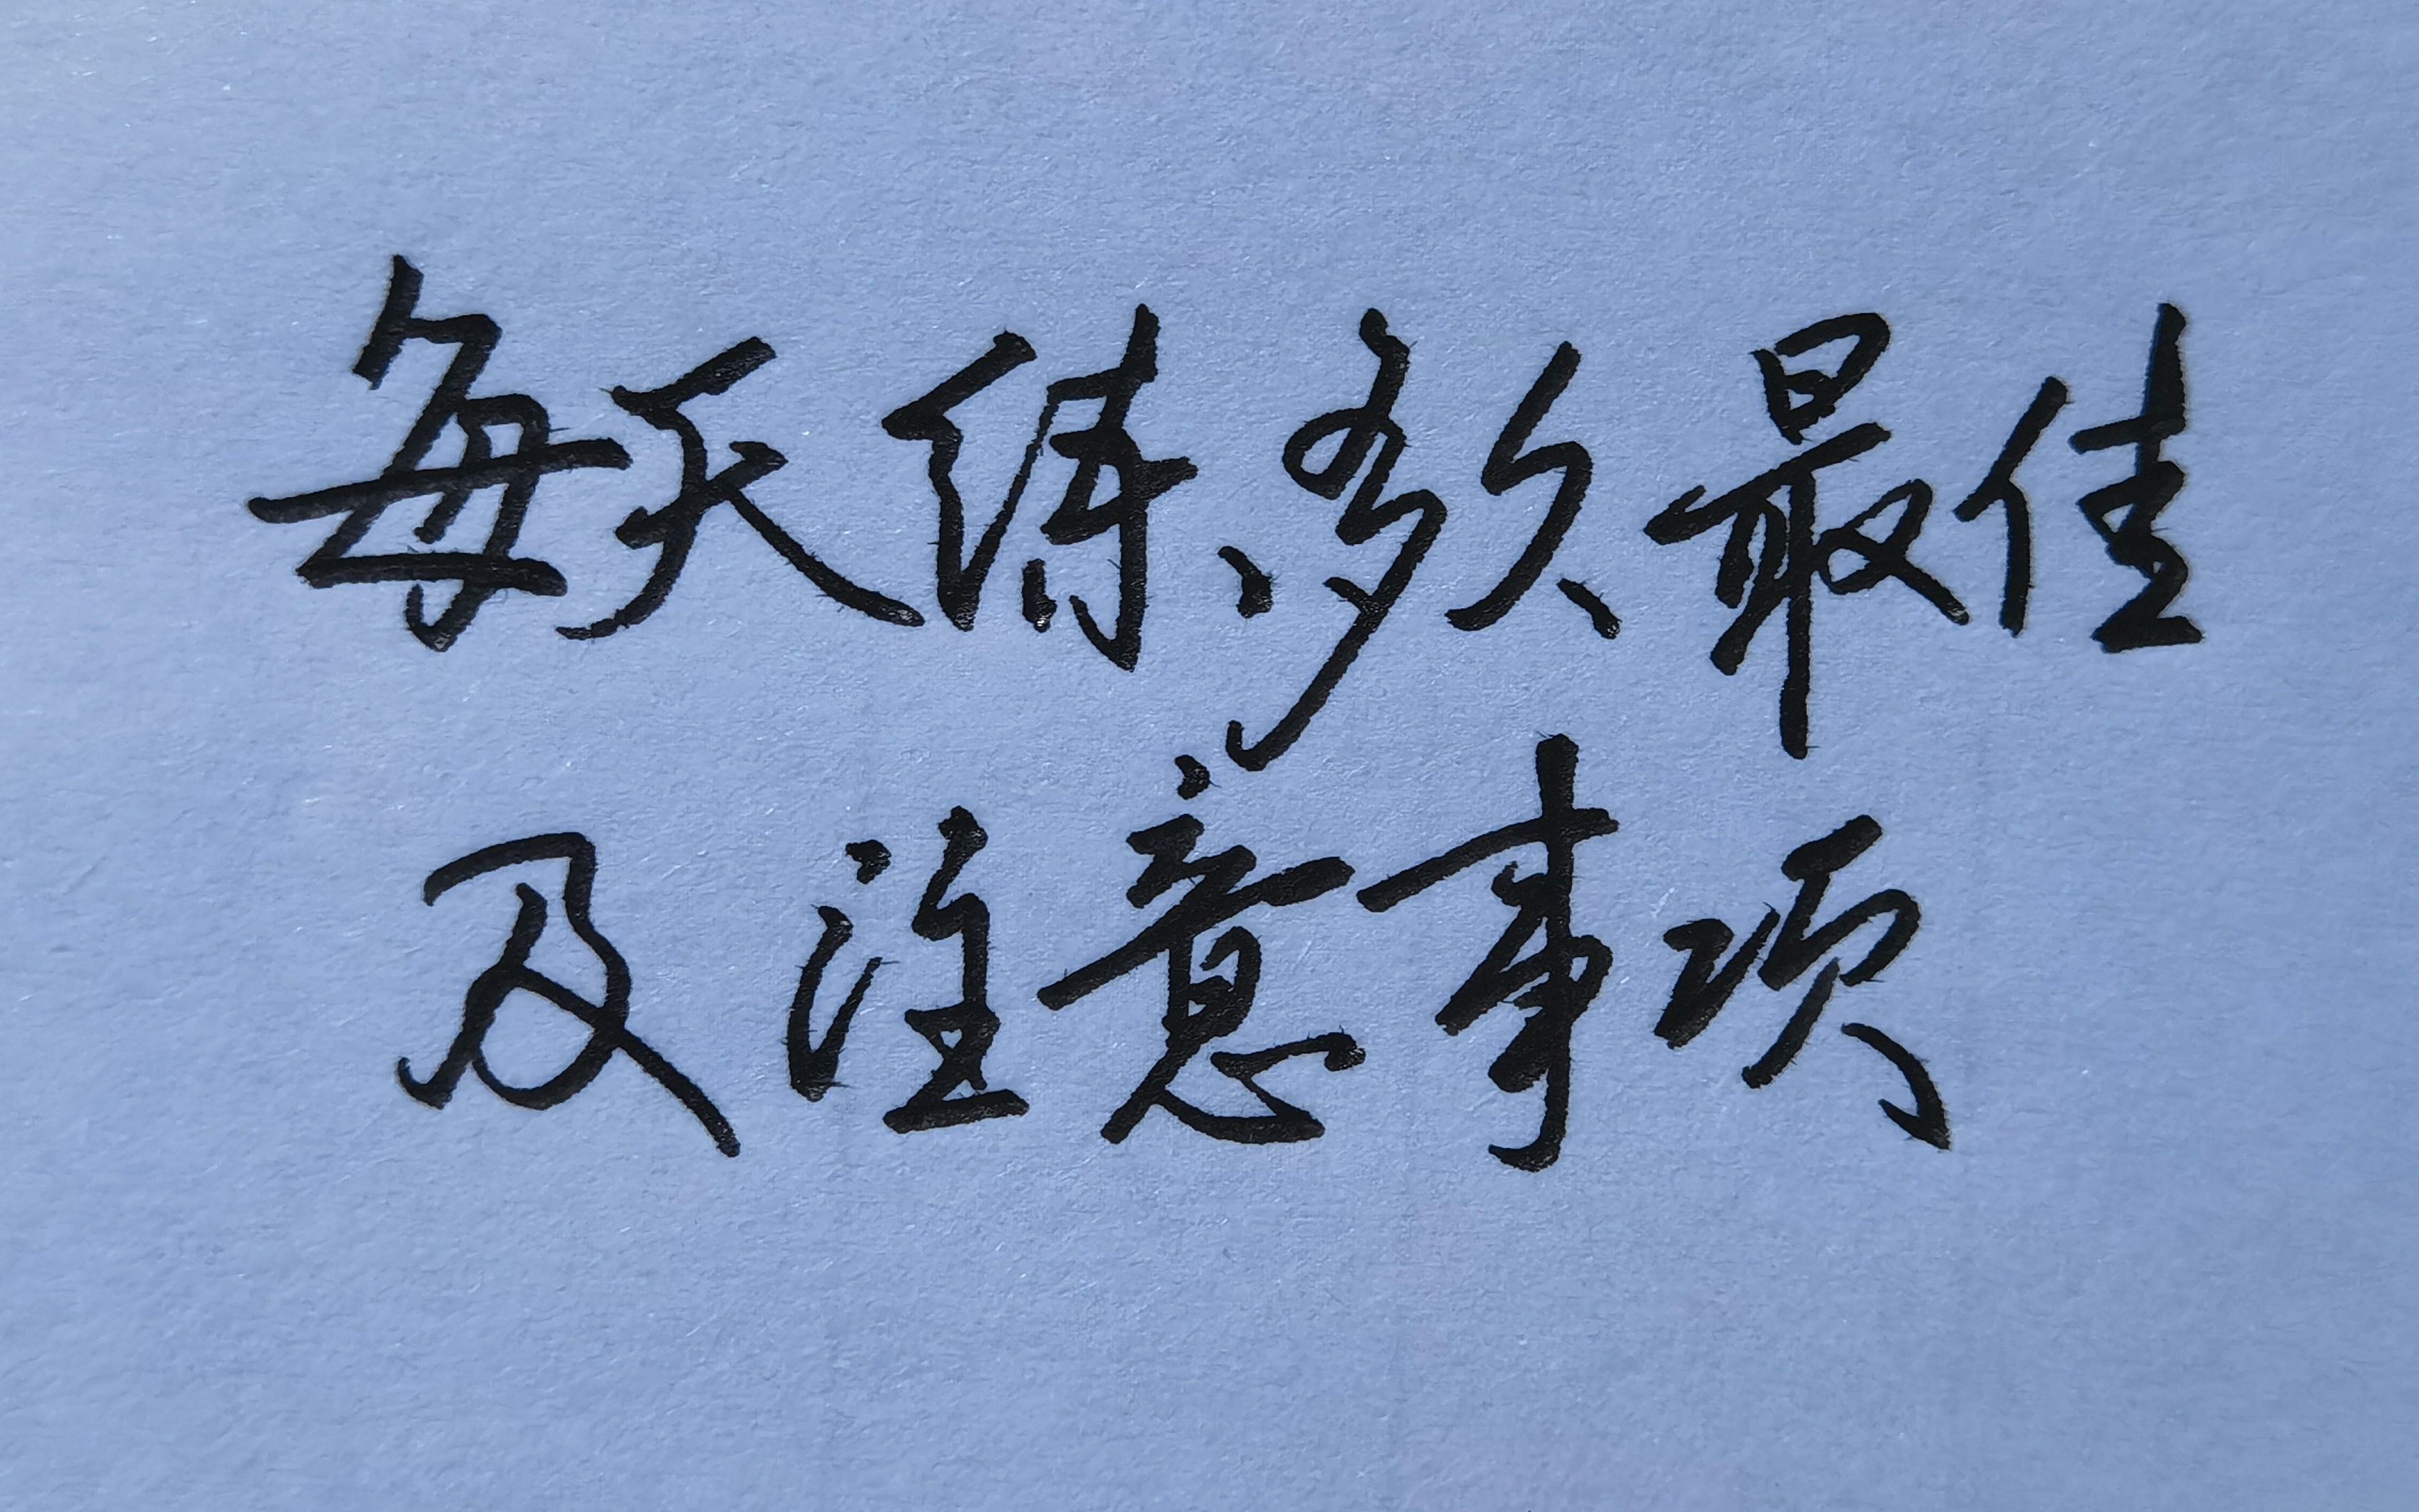 每天练多久最佳
及注意事项